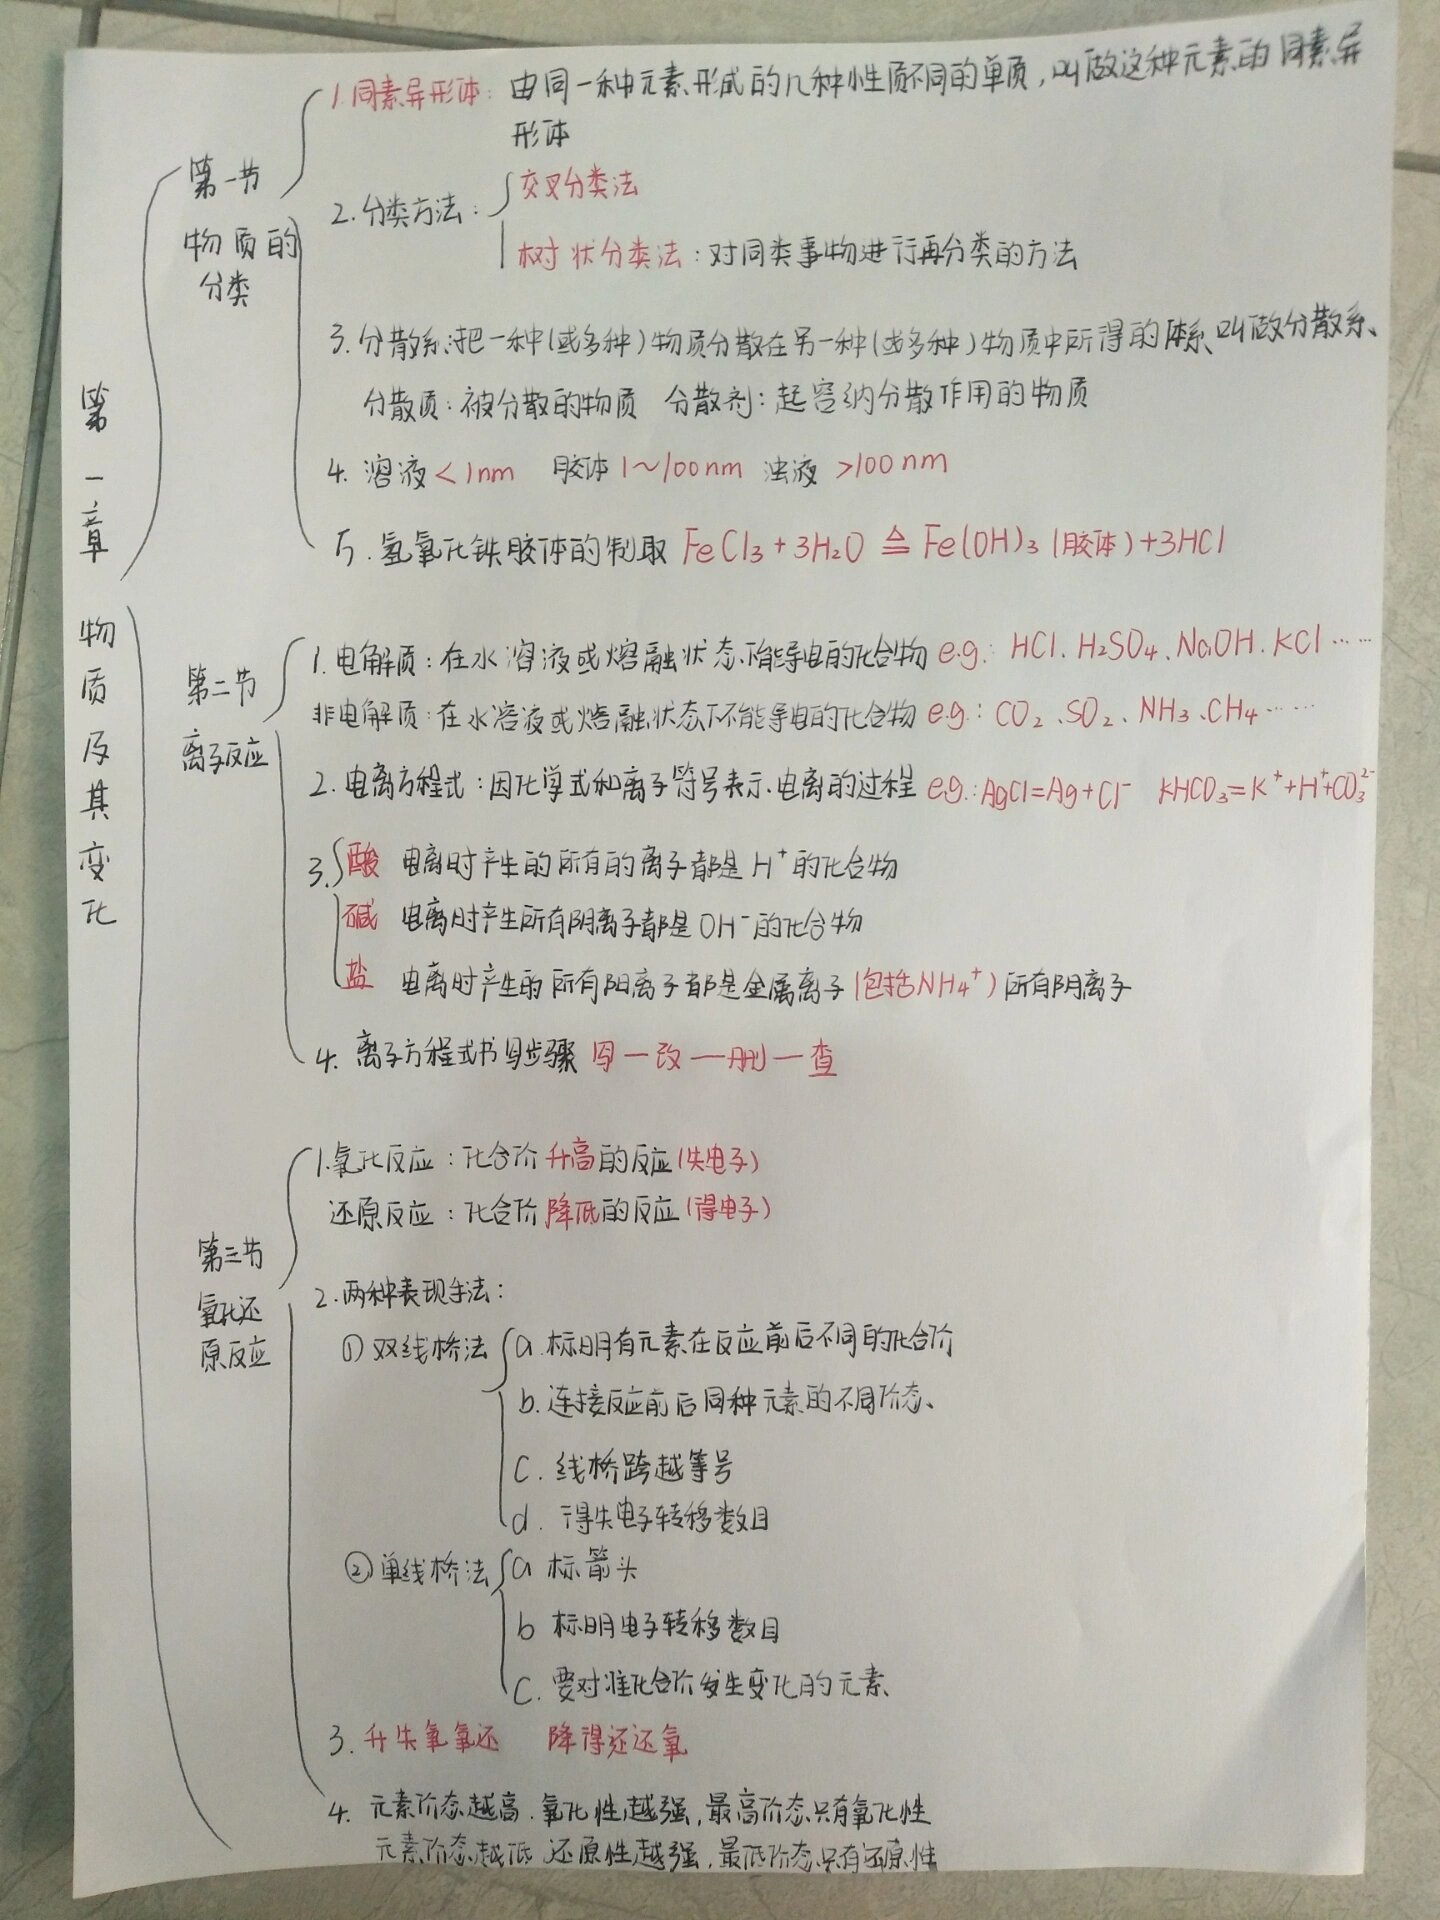 第一章 物质及其变化
第一节
物质的
分类
1.同素异形体：由同一种元素形成的几种性质不同的单质，叫做这种元素的同素异
形体
2.分类方法：
交叉分类法
树状分类法：对同类事物进行再分类的方法
3.分散系：把一种(或多种)物质分散在另一种(或多种)物质中所得的体系叫做分散系、
分散质：被分散的物质 分散剂：起容纳分散作用的物质
4.溶液<1nm 胶体1~100nm 浊液>100nm
5.氢氧化铁胶体的制取 FeCl₃+3H₂O ≜ Fe(OH)₃(胶体)+3HCl
第二节
离子反应
1.电解质：在水溶液或熔融状态下能导电的化合物 e.g.: HCl、H₂SO₄、NaOH、KCl……
非电解质：在水溶液或熔融状态下不能导电的化合物 e.g.: CO₂、SO₂、NH₃、CH₄……
2.电离方程式：因化学式和离子符号表示电离的过程 e.g.:AgCl=Ag+Cl⁻ KHCO₃=K⁺+H⁺+CO₃²⁻
3.酸 电离时产生的所有的离子都是H⁺的化合物
碱 电离时产生所有阴离子都是OH⁻的化合物
盐 电离时产生的所有阳离子都是金属离子(包括NH₄⁺)所有阴离子
4.离子方程式书写步骤 写一改一删一查
第三节
氧化还
原反应
1.氧化反应：化合价升高的反应(失电子)
还原反应：化合价降低的反应(得电子)
2.两种表现手法：
①双线桥法
a.标明有元素在反应前后不同的化合价
b.连接反应前后同种元素的不同价态、
c.线桥跨越等号
d.得失电子转移数目
②单线桥法
a 标箭头
b 标明电子转移数目
c.要对准化合价发生变化的元素
3.升失氧氧还 降得还还氧
4.元素价态越高.氧化性越强,最高价态只有氧化性
元素价态越低 还原性越强,最低价态只有还原性